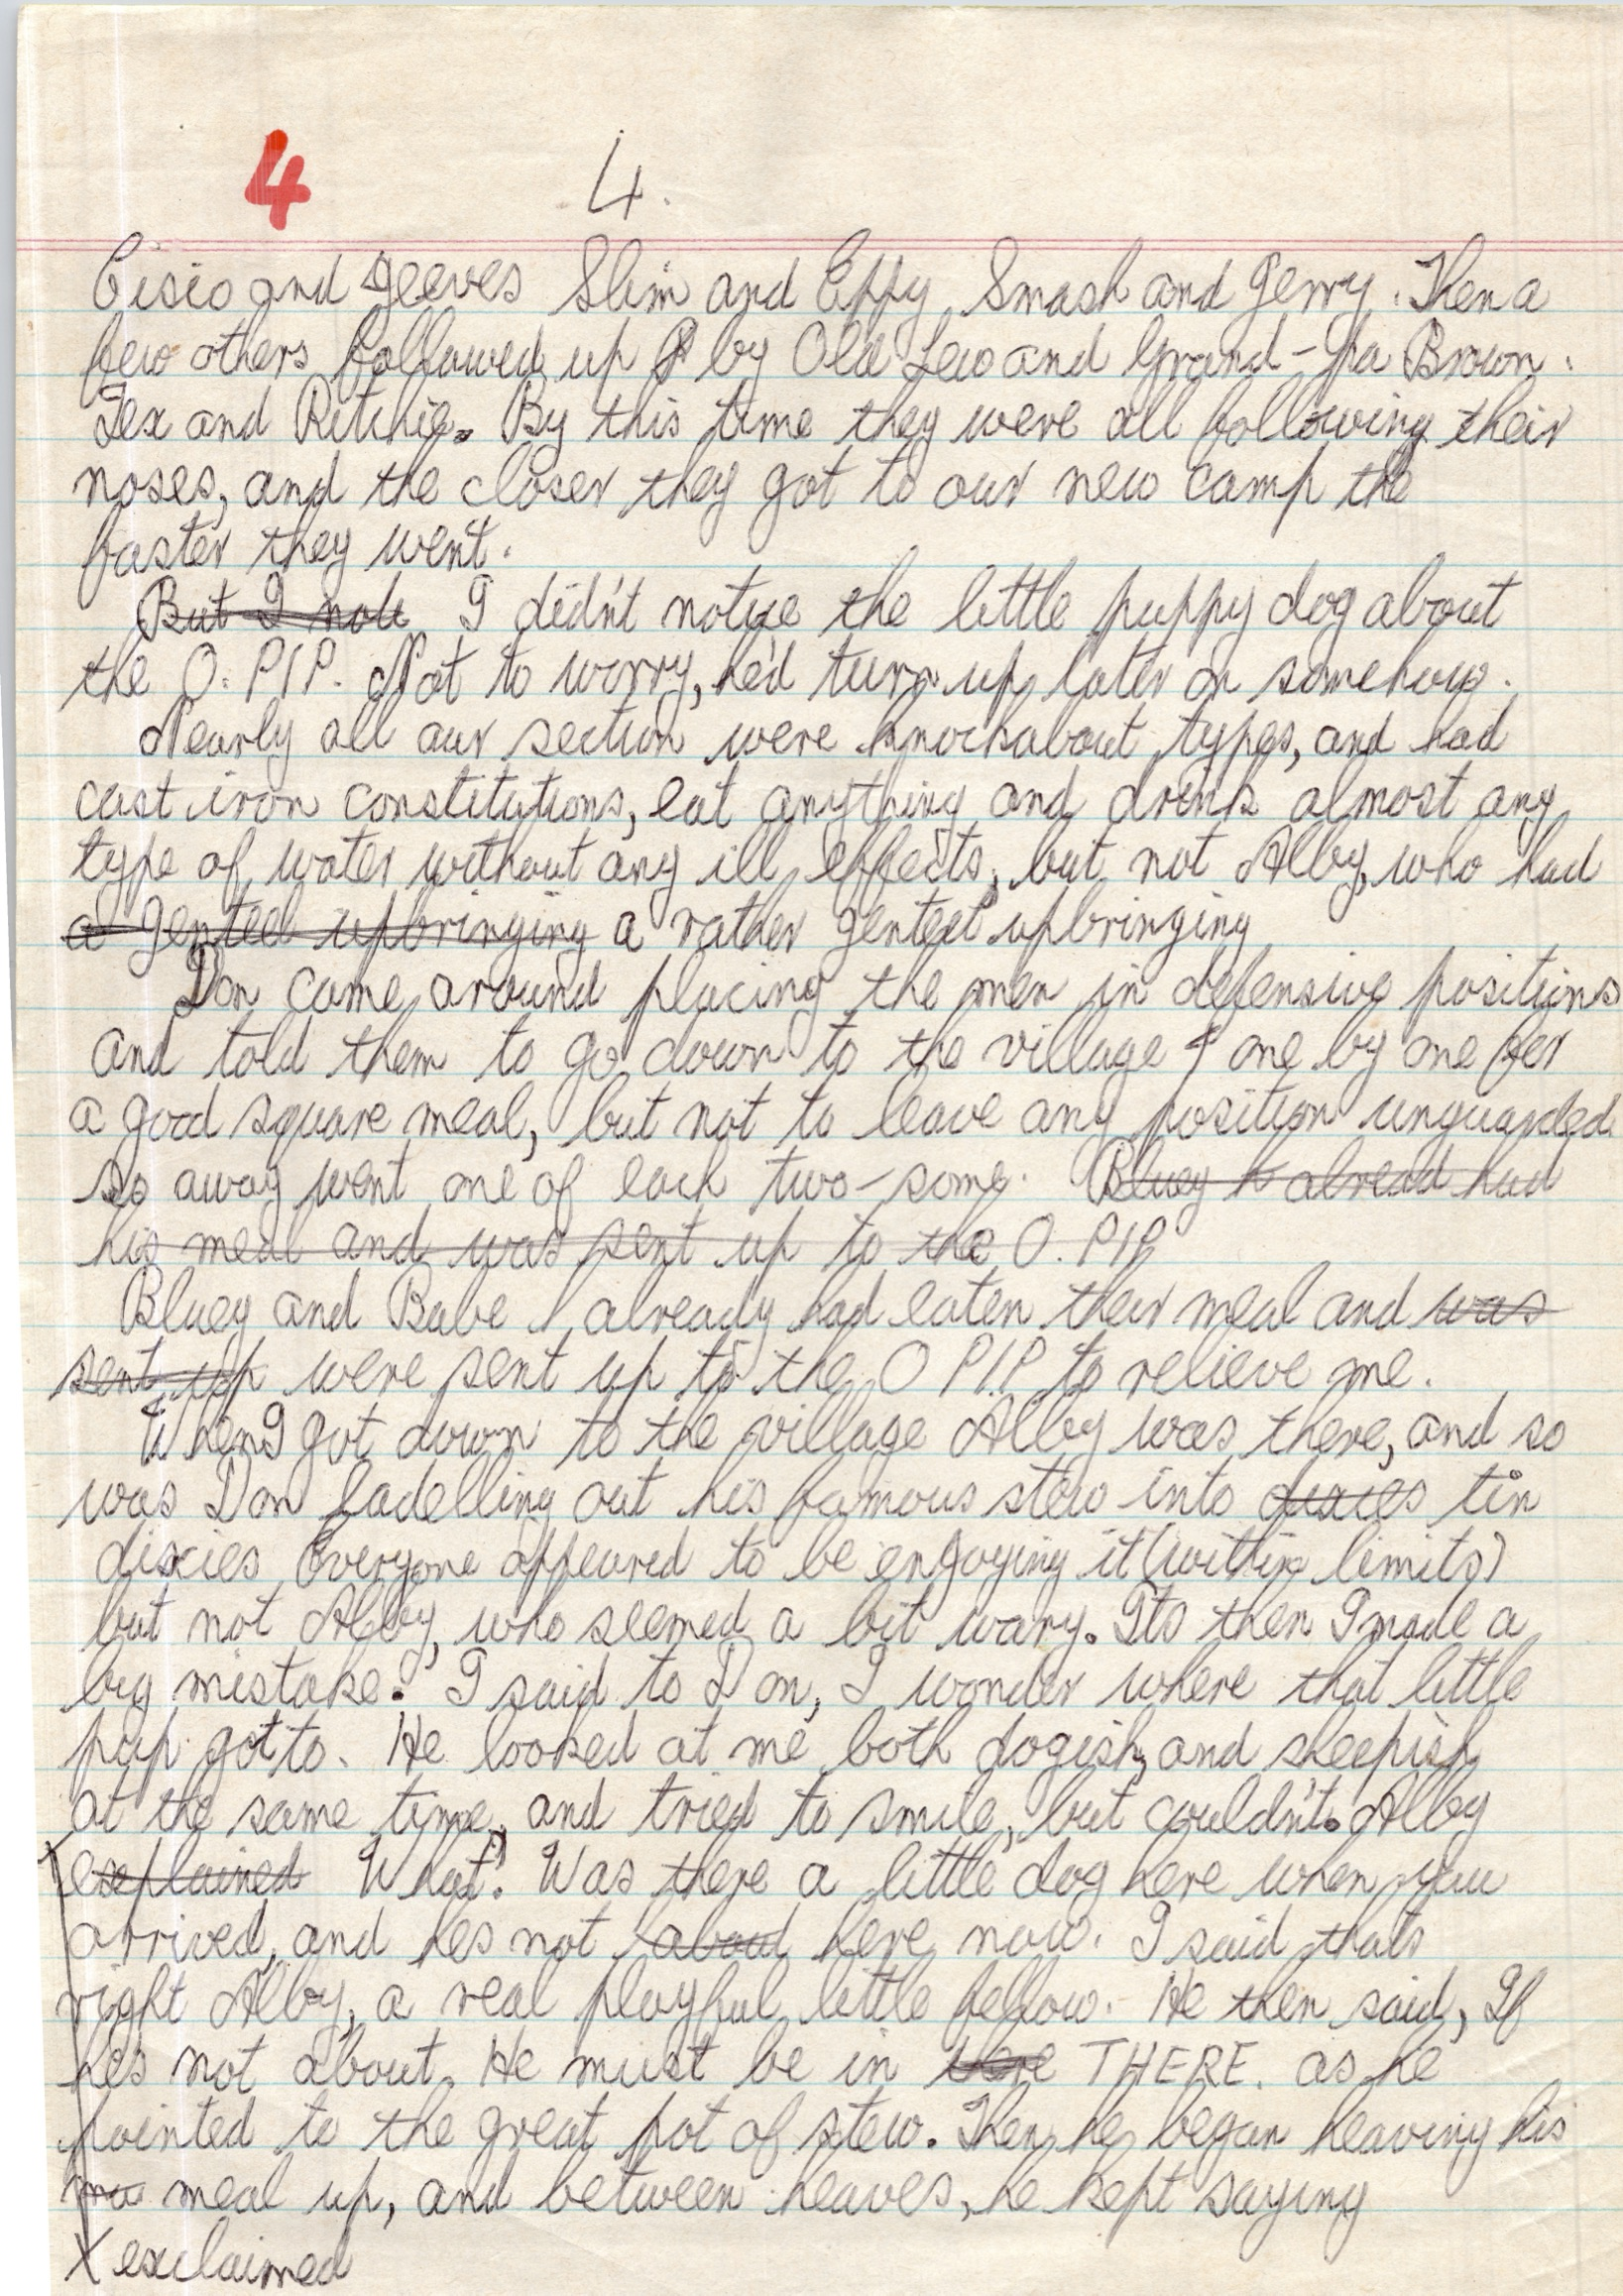 4 4.
Cisco and Jeeves Slim and Eppy Smash and Gerry. Then a
few others followed up by Old Lew and Grand-pa Brown.
Tex and Ritchie. By this time they were all following their
noses, and the closer they got to our new camp the
faster they went.
But I note I didn't notice the little puppy dog about
the O. PIP. Not to worry, he'd turn up later on somehow.
Nearly all our section were knockabout types, and had
cast iron constitutions, eat anything and drink almost any
type of water without any ill effects, but not Alby, who had
a genteel upbringing a rather genteel upbringing
Don came around placing the men in defensive positions
and told them to go down to the village one by one for
a good square meal, but not to leave any position unguarded
so away went one of each two-some. Bluey h alread had
his meal and was sent up to the O. PIP
Bluey and Babe already had eaten their meal and was
sent up were sent up to the O PIP to relieve me.
When I got down to the village Alby was there, and so
was Don ladelling out his famous stew into dixies tin
dixies Everyone appeared to be enjoying it (within limits)
but not Alby, who seemed a bit wary. Its then I made a
big mistake. I said to Don, I wonder where that little
pup got to. He looked at me both dogish and sheepish
at the same time, and tried to smile, but couldn't. Alby
X explained What! Was there a little dog here when you
arrived, and hes not about here now. I said thats
right Alby, a real playful little fellow. He then said, If
hes not about. He must be in there THERE. as he
pointed to the great pot of stew. Then he began heaving his
meal up, and between heaves, he kept saying
X exclaimed